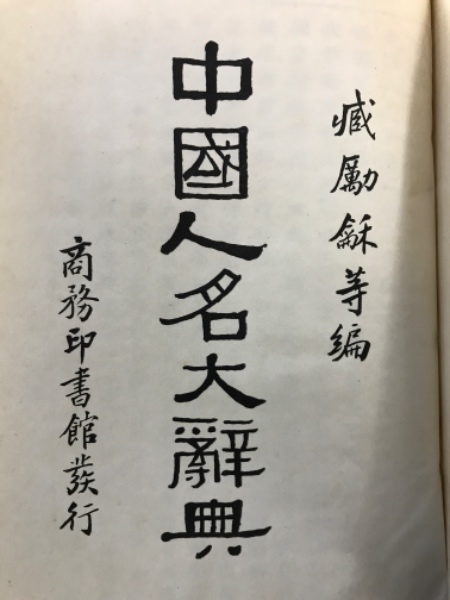 臧勵龢等編
中國人名大辭典
商務印書館發行